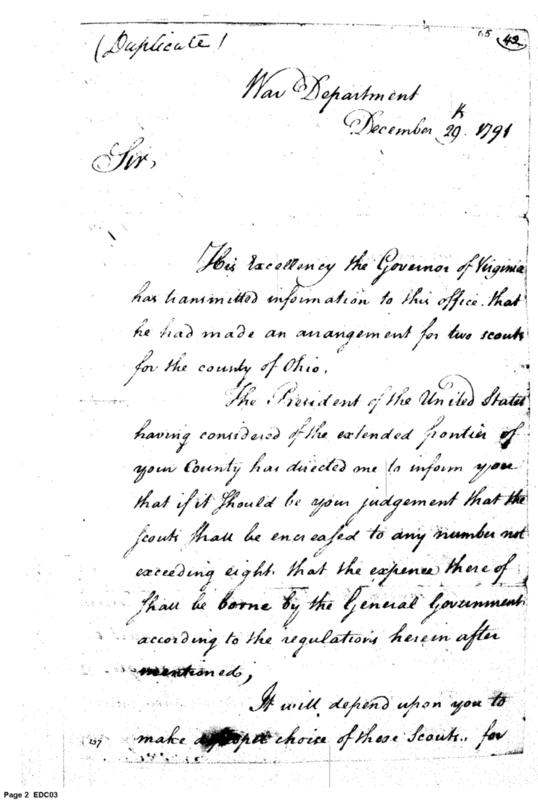 (Duplicate)
42
War Department
December 29. 1791
Sir,
His Excellency the Governor of Virginia
has transmitted information to this office. that
he had made an arrangement for two scouts
for the county of Ohio.
The President of the United States
having considered of the extended frontier of
your County has directed me to inform you
that if it should be your judgement that the
scouts shall be encreased to any number not
exceeding eight. that the expence there of
shall be borne by the General Government
according to the regulations herein after
mentioned,
It will depend upon you to
make a proper choice of these Scouts. for
Page 2 EDC03